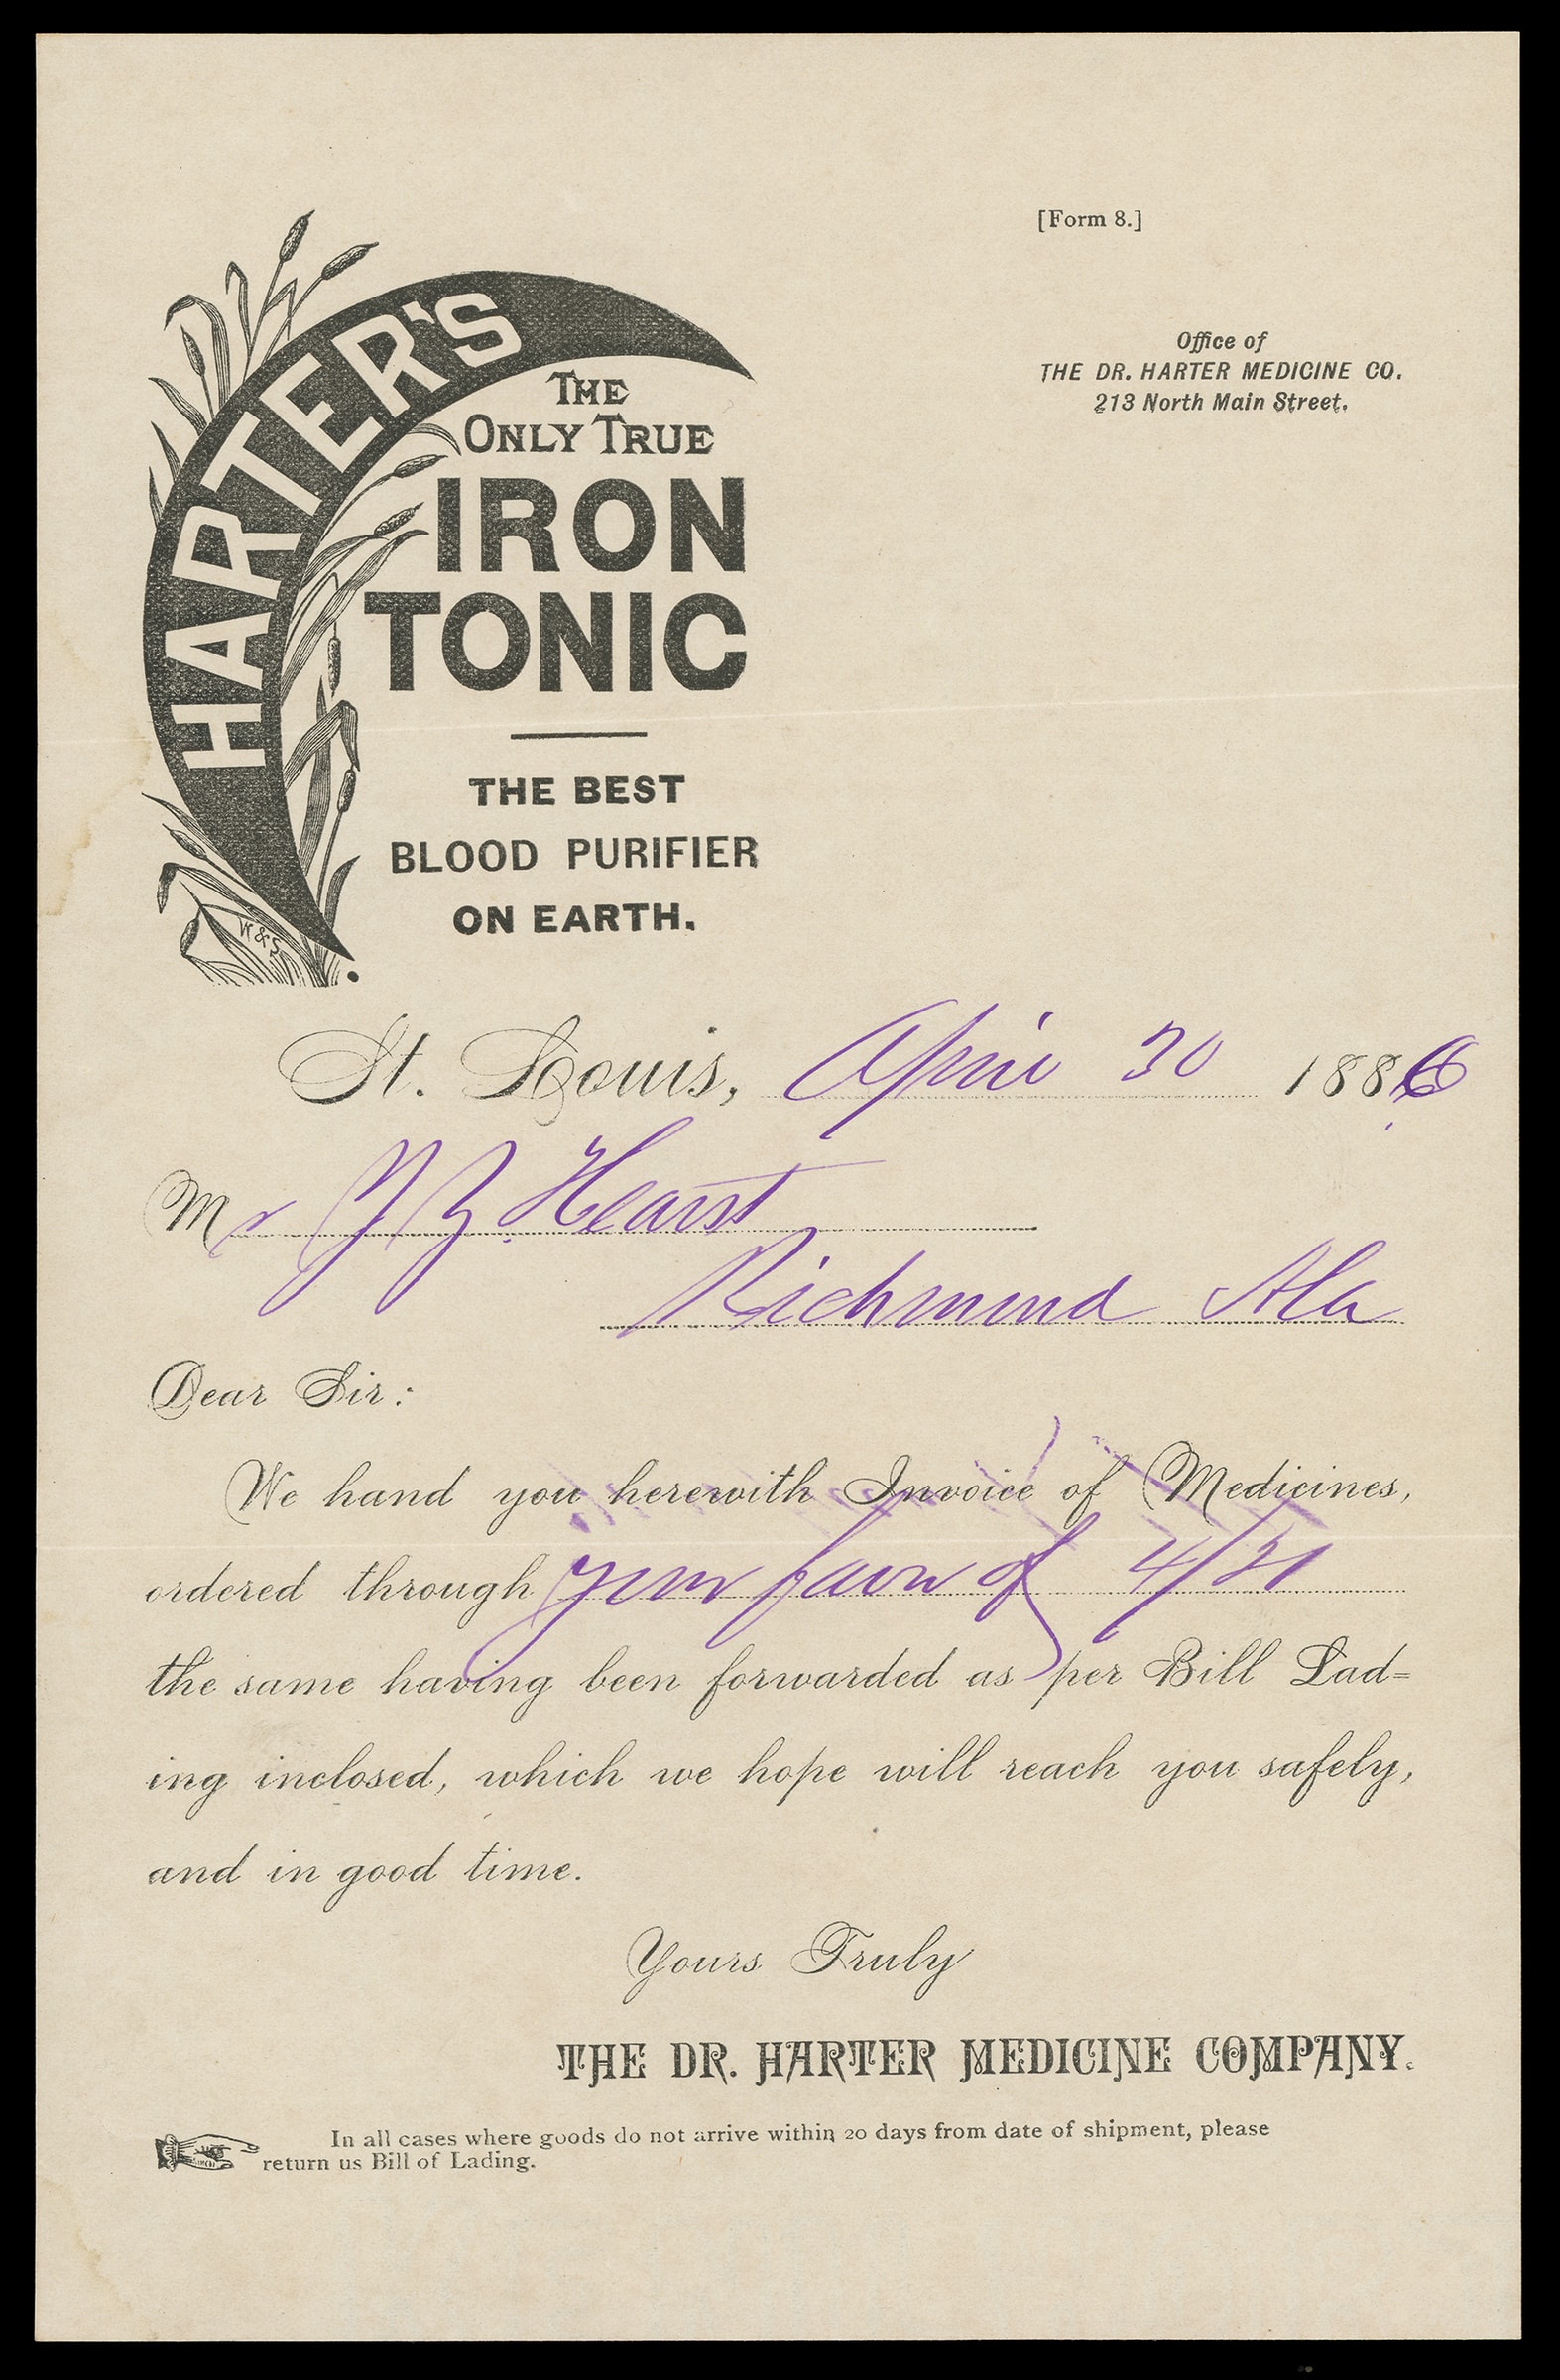 [Form 8.]
Office of
THE DR. HARTER MEDICINE CO.
213 North Main Street.
HARTER'S
THE
ONLY TRUE
IRON
TONIC
THE BEST
BLOOD PURIFIER
ON EARTH.
W&S
St. Louis, April 30 1886
Mr Hearst
Richmond Ala
Dear Sir:
We hand you herewith Invoice of Medicines,
ordered through your favor of 4/21
the same having been forwarded as per Bill Lad=
ing inclosed, which we hope will reach you safely,
and in good time.
Yours Truly
THE DR. HARTER MEDICINE COMPANY.
In all cases where goods do not arrive within 20 days from date of shipment, please
return us Bill of Lading.